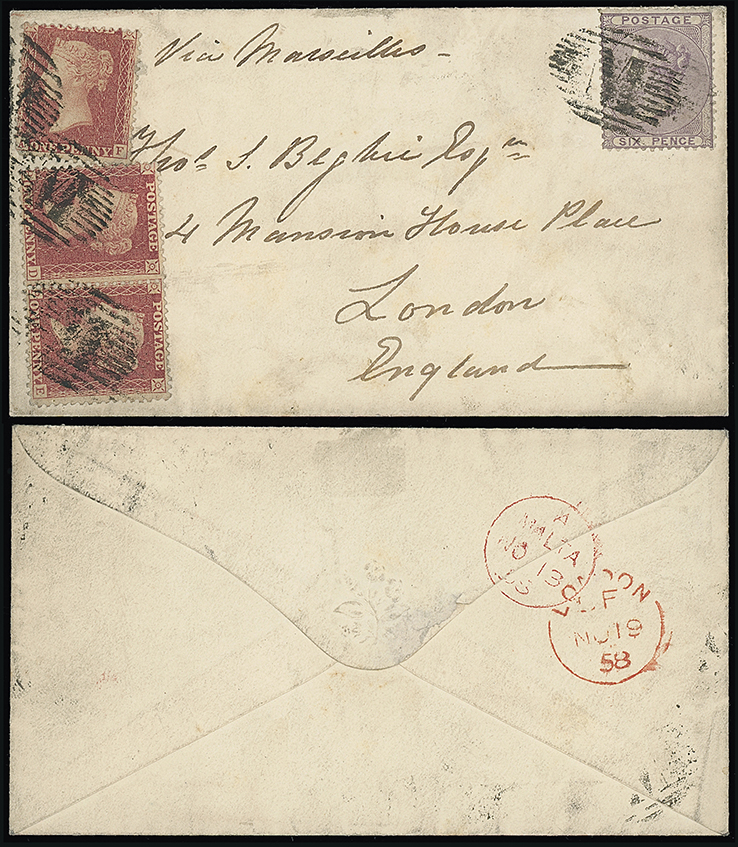 Via Marseilles -
Thos. S. Begbie Esqre
4 Mansion House Place
London
England
ONE PENNY F
POSTAGE
D
POSTAGE
ONE PENNY
E A
POSTAGE
SIX PENCE
A
MALTA
NO 13
58
LONDON
F
NO 19
58